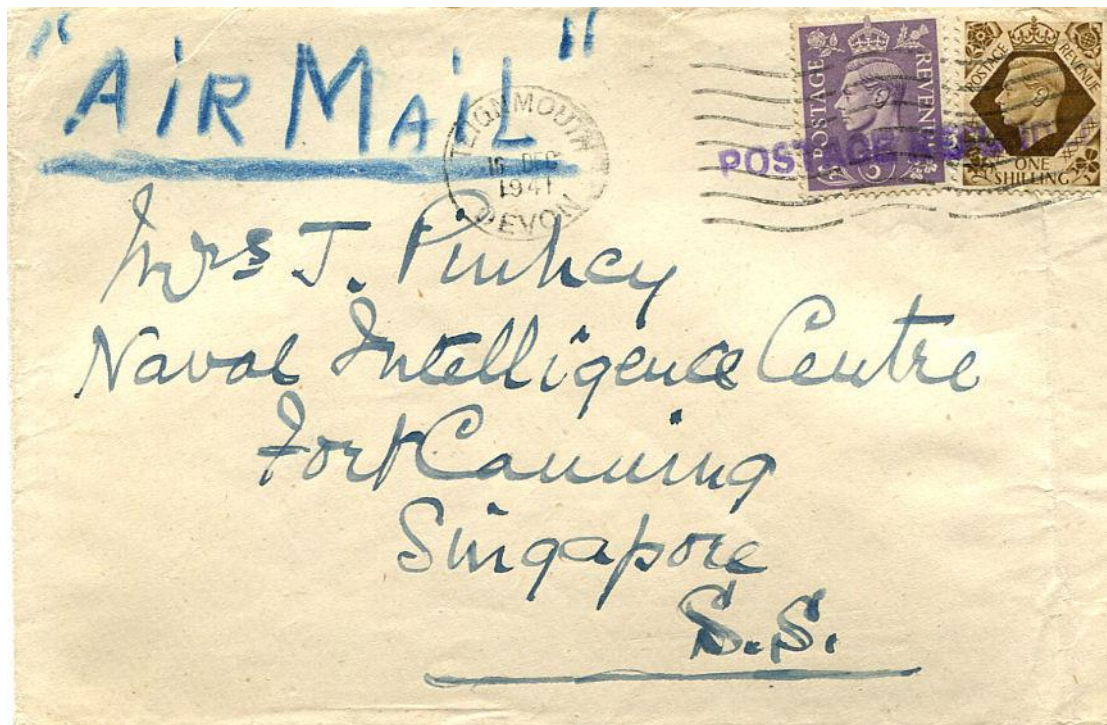 "AIR MAIL"
TEIGNMOUTH
DEC
1941
DEVON
POSTAGE REVENUE
POSTAGE REVENUE
ONE
SHILLING
POSTAGE
Mrs J. Pinhey
Naval Intelligence Centre
Fort Canning
Singapore
S.S.